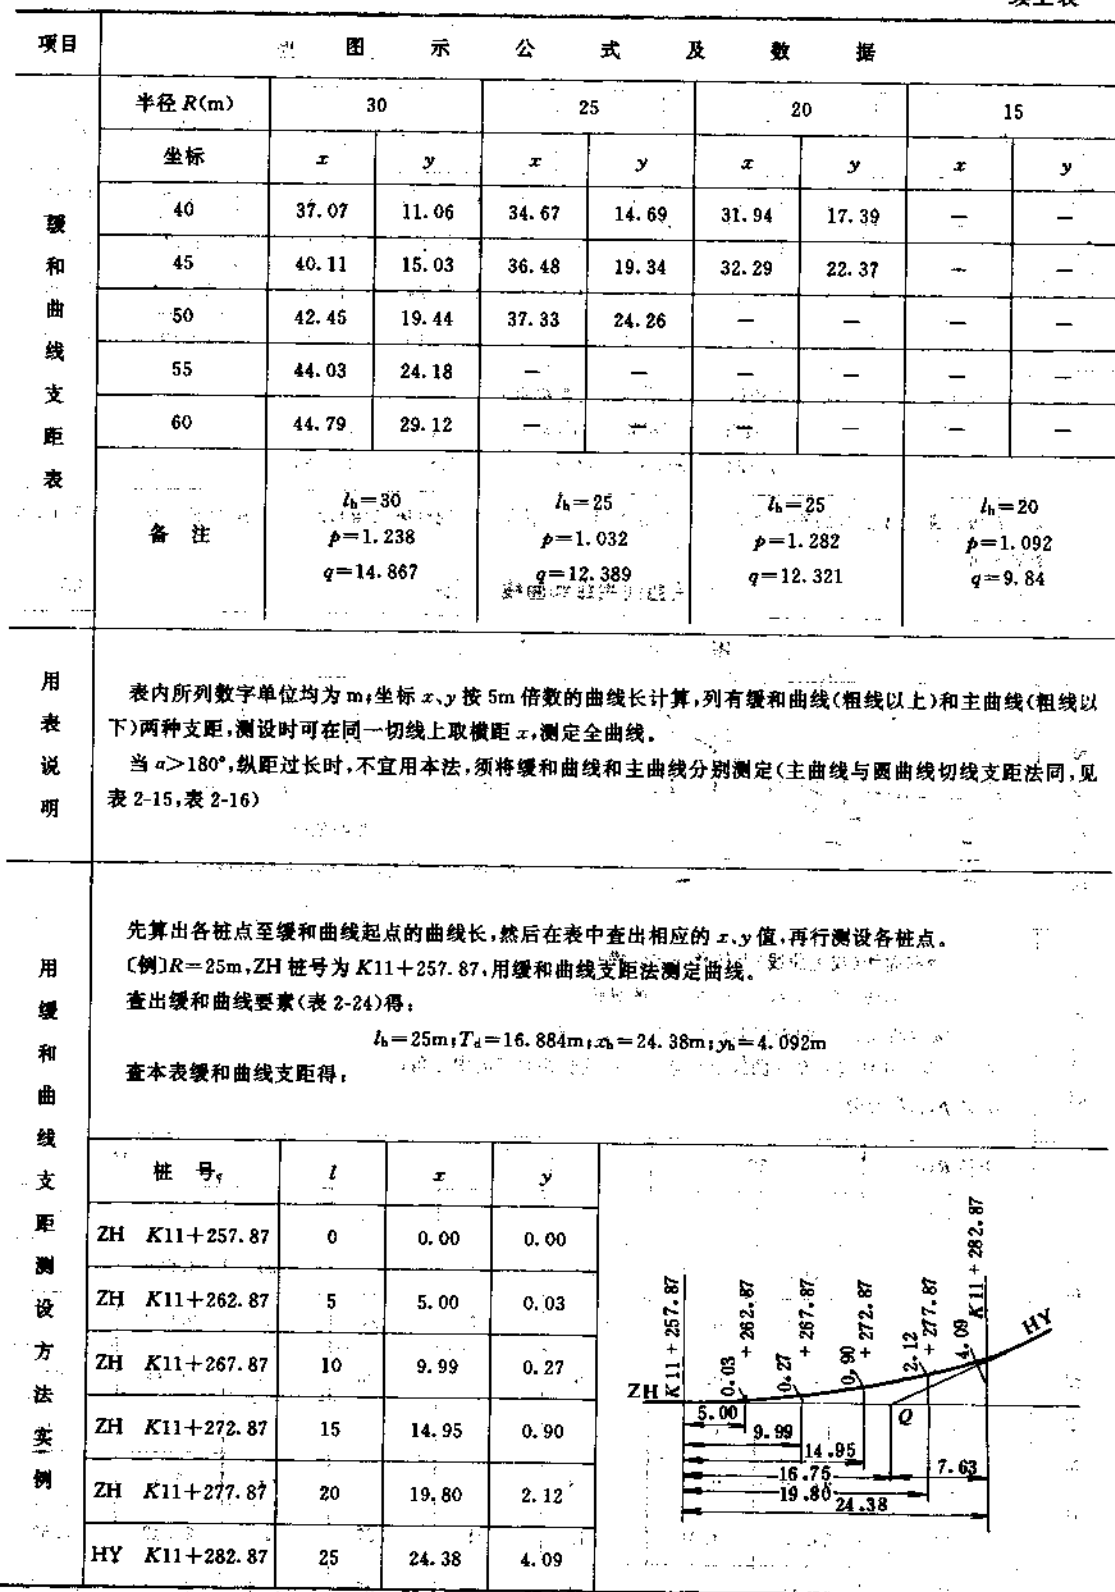 续上表
项目 图 示 公 式 及 数 据
缓和曲线支距表
半径 R(m) 30 25 20 15
坐标 x y x y x y x y
40 37.07 11.06 34.67 14.69 31.94 17.39 — —
45 40.11 15.03 36.48 19.34 32.29 22.37 — —
50 42.45 19.44 37.33 24.26 — — — —
55 44.03 24.18 — — — — — —
60 44.79 29.12 — — — — — —
备 注
lh=30 lh=25 lh=25 lh=20
p=1.238 p=1.032 p=1.282 p=1.092
q=14.867 q=12.389 q=12.321 q=9.84
用表说明
表内所列数字单位均为 m;坐标 x、y 按 5m 倍数的曲线长计算,列有缓和曲线(粗线以上)和主曲线(粗线以
下)两种支距,测设时可在同一切线上取横距 x,测定全曲线。
当 α>180°,纵距过长时,不宜用本法,须将缓和曲线和主曲线分别测定(主曲线与圆曲线切线支距法同,见
表 2-15,表 2-16)
用缓和曲线支距测设方法实例
先算出各桩点至缓和曲线起点的曲线长,然后在表中查出相应的 x、y 值,再行测设各桩点。
〔例〕R=25m,ZH 桩号为 K11+257.87,用缓和曲线支距法测定曲线。
查出缓和曲线要素(表 2-24)得:
lh=25m;Td=16.884m;xh=24.38m;yh=4.092m
查本表缓和曲线支距得:
桩 号 l x y
ZH K11+257.87 0 0.00 0.00
ZH K11+262.87 5 5.00 0.03
ZH K11+267.87 10 9.99 0.27
ZH K11+272.87 15 14.95 0.90
ZH K11+277.87 20 19.80 2.12
HY K11+282.87 25 24.38 4.09
K11+257.87
0.03 +262.87
0.27 +267.87
0.90 +272.87
2.12 +277.87
4.09 K11+282.87
ZH
HY
Q
5.00
9.99
14.95
16.75
7.63
19.80
24.38